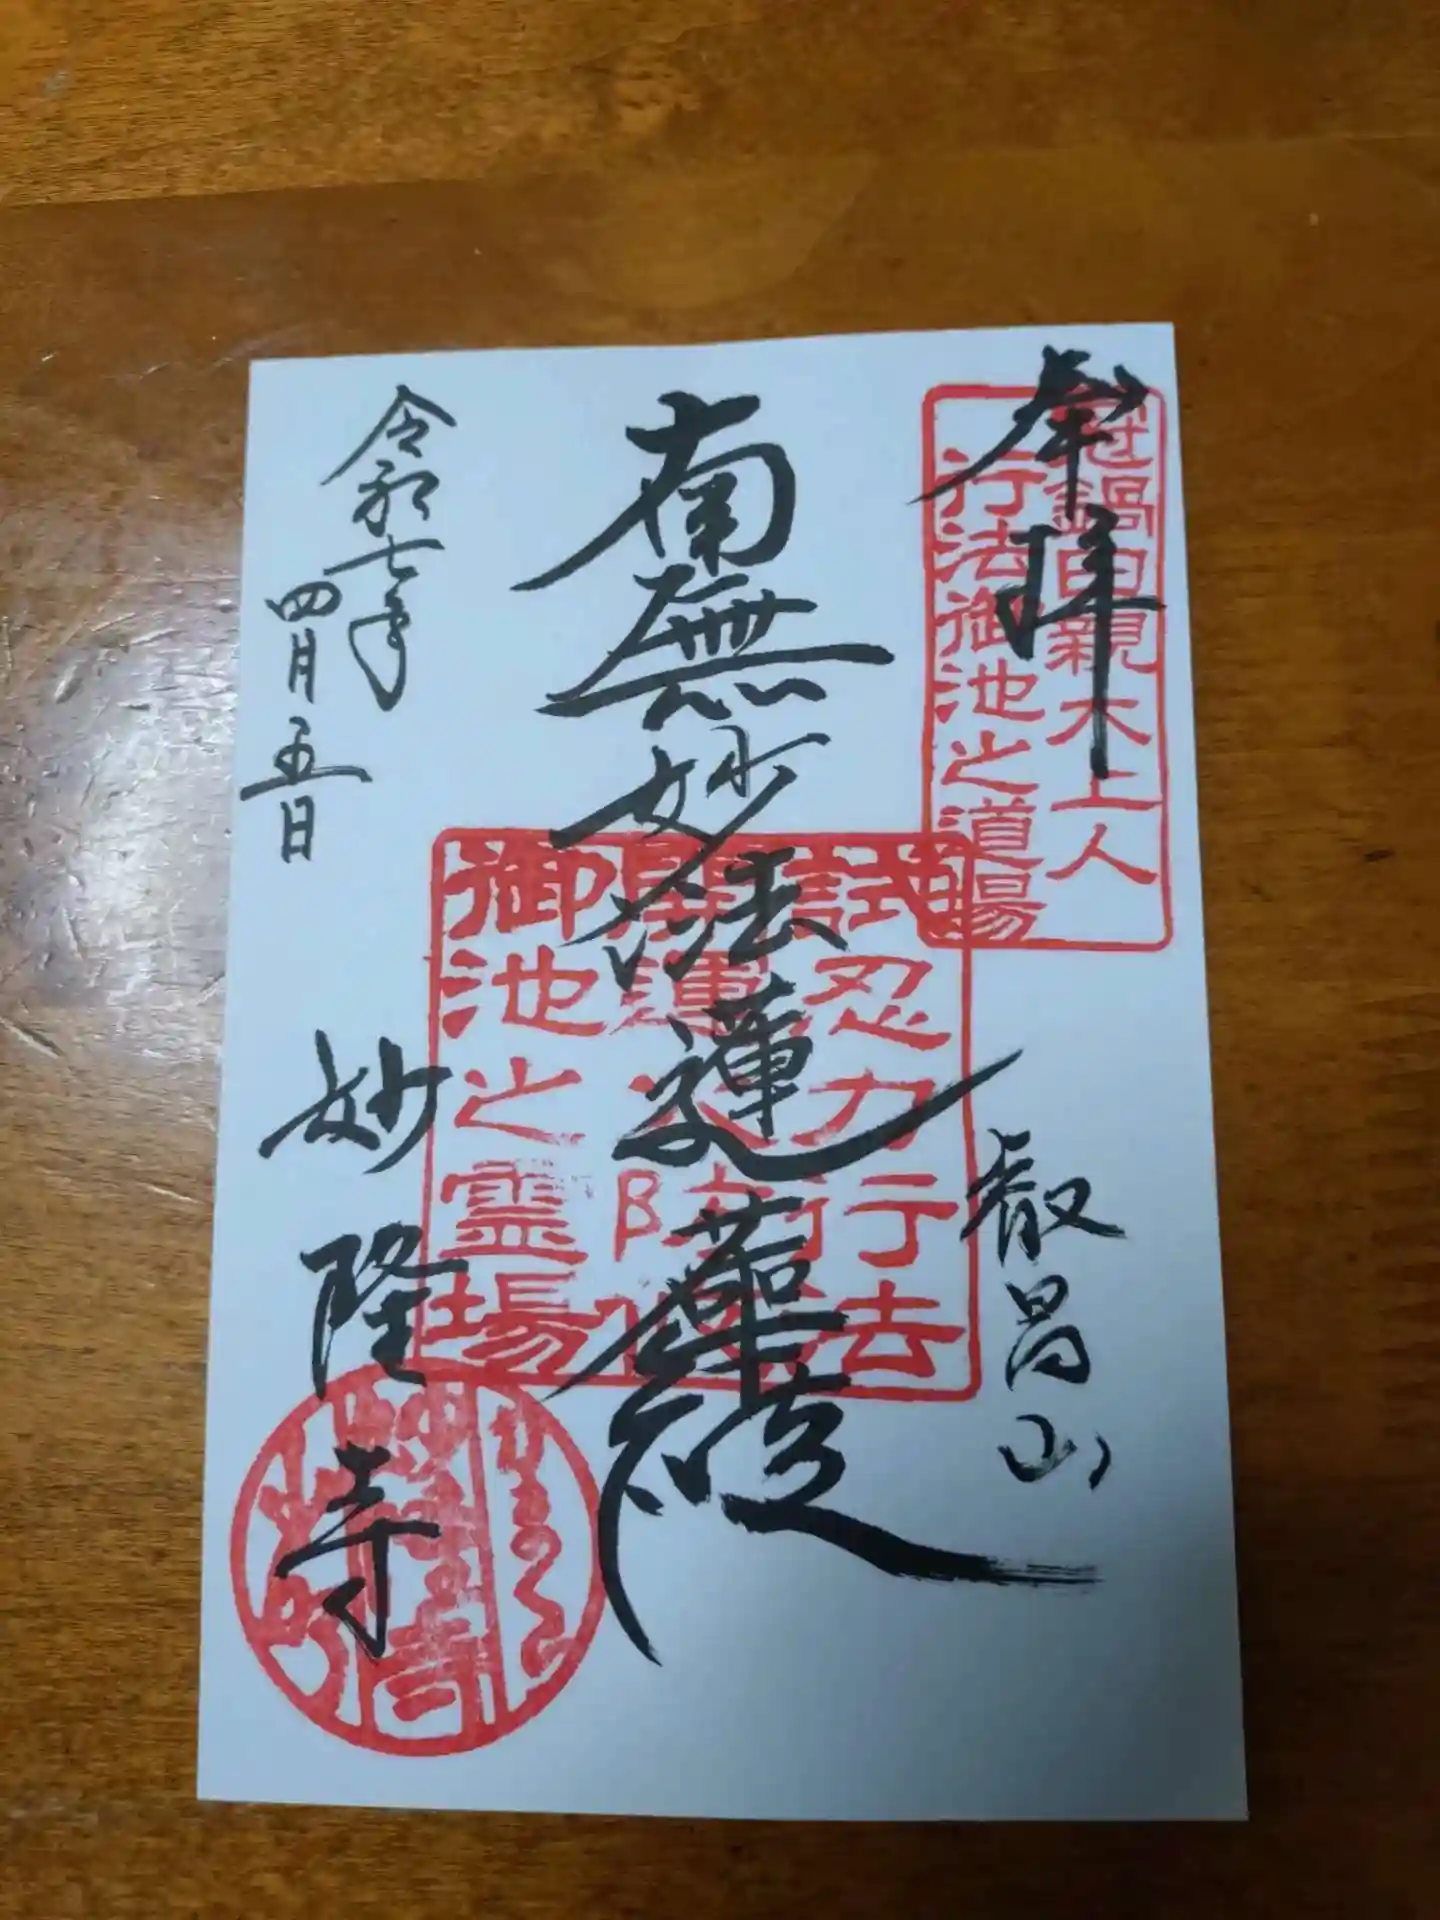 奉拝
冠鍋日親大上人
行法御池之道場
叡昌山
南無妙法蓮華経
試忍力行去
御池之霊場
令和七年
四月五日
妙隆寺